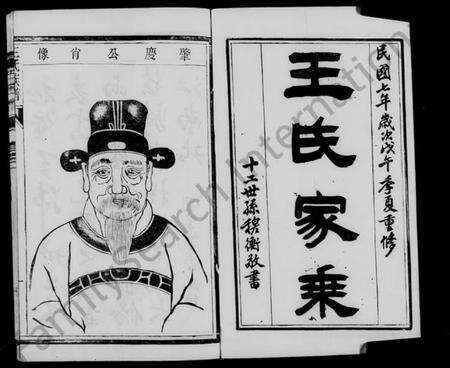 民國七年歲次戊午季夏重修
王氏家乘
十二世孫穆衡敬書
肇慶公肖像
FamilySearch International